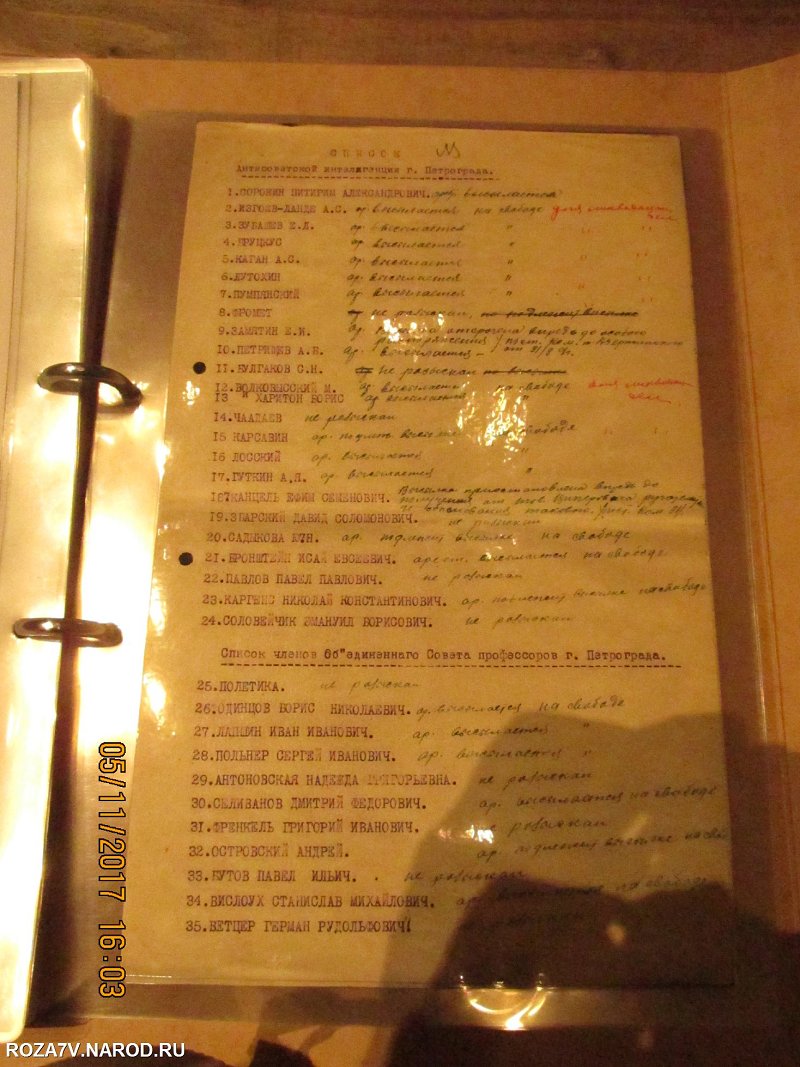 СПИСОК
Антисоветской интеллигенции г. Петрограда.
1.СОРОКИН ПИТИРИМ АЛЕКСАНДРОВИЧ. высылается
2.ИЗГОЕВ-ЛАНДЕ А.С. ар. высылается на свободе для ликвидации дел
3.ЗУБАШЕВ Е.Л. ар. высылается "
4.БРУЦКУС ар. высылается "
5.КАГАН А.С. ар. высылается "
6.ЛУТОХИН ар. высылается "
7.ПУМПЯНСКИЙ ар. высылается "
8.ФРОМЕТ не разыскан,
9.ЗАМЯТИН Е.И. ар. отсрочена впредь до особого
распоряжения
10.ПЕТРИЩЕВ А.Б. ар. высылается -
11.БУЛГАКОВ С.Н. не разыскан
12.ВОЛКОВЫССКИЙ М. ар. высылается на свободе для ликвидации дел
13 " ХАРИТОН БОРИС ар. высылается "
14.ЧААДАЕВ не разыскан
15 КАРСАВИН ар. подлежит высылке на свободе
16 ЛОССКИЙ ар. высылается "
17.ГУТКИН А.Я. ар. высылается "
18?КАНЦЕЛЬ ЕФИМ СЕМЕНОВИЧ. Высылка приостановлена впредь до
получения
19.ЗБАРСКИЙ ДАВИД СОЛОМОНОВИЧ. не разыскан
20.САДЫКОВА ЮЖН. ар. подлежит высылке на свободе
21.БРОНШТЕЙН ИСАЙ ЕВСЕЕВИЧ. арест. высылается на свободе
22.ПАВЛОВ ПАВЕЛ ПАВЛОВИЧ. не разыскан
23.КАРГЕНС НИКОЛАЙ КОНСТАНТИНОВИЧ. ар. подлежит высылке на свободе
24.СОЛОВЕЙЧИК ЭМАНУИЛ БОРИСОВИЧ. не разыскан
Список членов Об"единеннаго Совета профессоров г. Петрограда.
25.ПОЛЕТИКА. не разыскан
26.ОДИНЦОВ БОРИС НИКОЛАЕВИЧ. ар. высылается на свободе
27.ЛАПШИН ИВАН ИВАНОВИЧ. ар. высылается "
28.ПОЛЬНЕР СЕРГЕЙ ИВАНОВИЧ. ар. высылается "
29.АНТОНОВСКАЯ НАДЕЖДА ГРИГОРЬЕВНА. не разыскан
30.СЕЛИВАНОВ ДМИТРИЙ ФЕДОРОВИЧ. ар. высылается на свободе
31.ФРЕНКЕЛЬ ГРИГОРИЙ ИВАНОВИЧ. не разыскан
32.ОСТРОВСКИЙ АНДРЕЙ. ар. подлежит высылке
33.БУТОВ ПАВЕЛ ИЛЬИЧ. . не разыскан
34.ВИСЛОУХ СТАНИСЛАВ МИХАЙЛОВИЧ. ар. на свободе
35.ВЕТЦЕР ГЕРМАН РУДОЛЬФОВИЧ
05/11/2017 16:03
ROZA7V.NAROD.RU